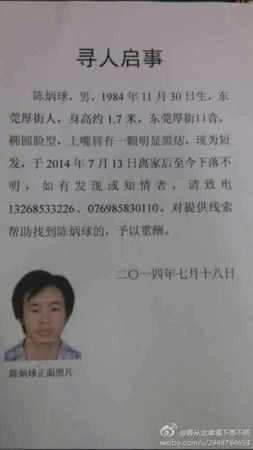 寻人启事
陈炳球，男，1984 年 11 月 30 日生，东
莞厚街人，身高约 1.7 米，东莞厚街口音，
椭圆脸型，上嘴唇有一颗明显黑痣，现为短
发，于 2014 年 7 月 13 日离家后至今下落不
明，如有发现或知情者，请致电
13268533226、076985830110。对提供线索
帮助找到陈炳球的，予以重酬。
二〇一四年七月十八日
陈炳球正面照片
@即从此幸福下落不明
weibo.com/u/2948784653